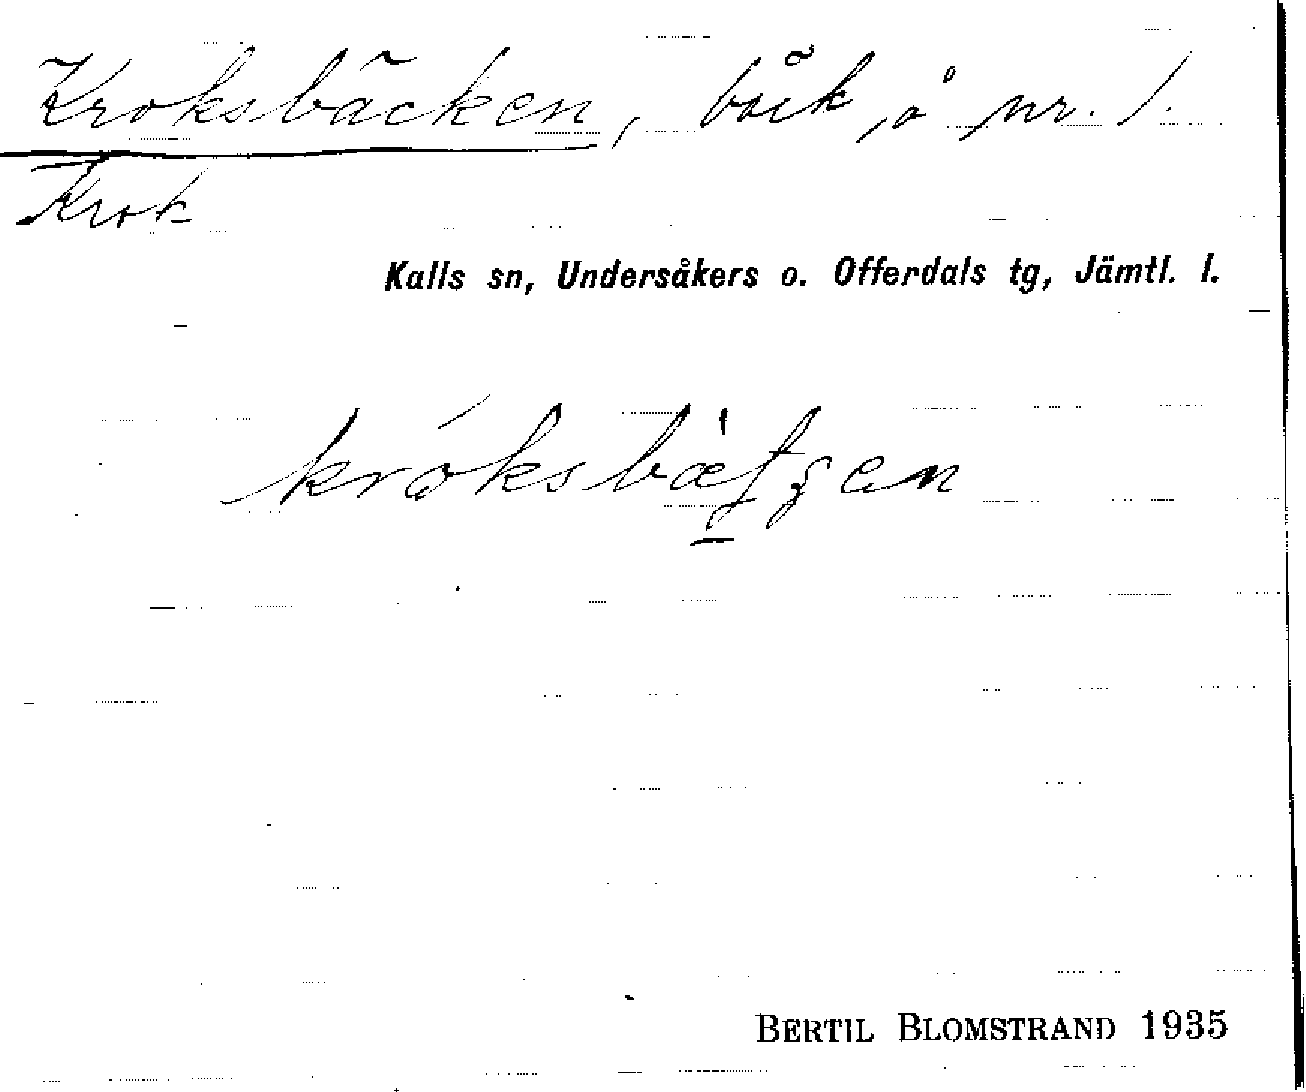 Kroksbäcken, bäck, å nr. 1.
Krok
Kalls sn, Undersåkers o. Offerdals tg, Jämtl. l.
BERTIL BLOMSTRAND 1935